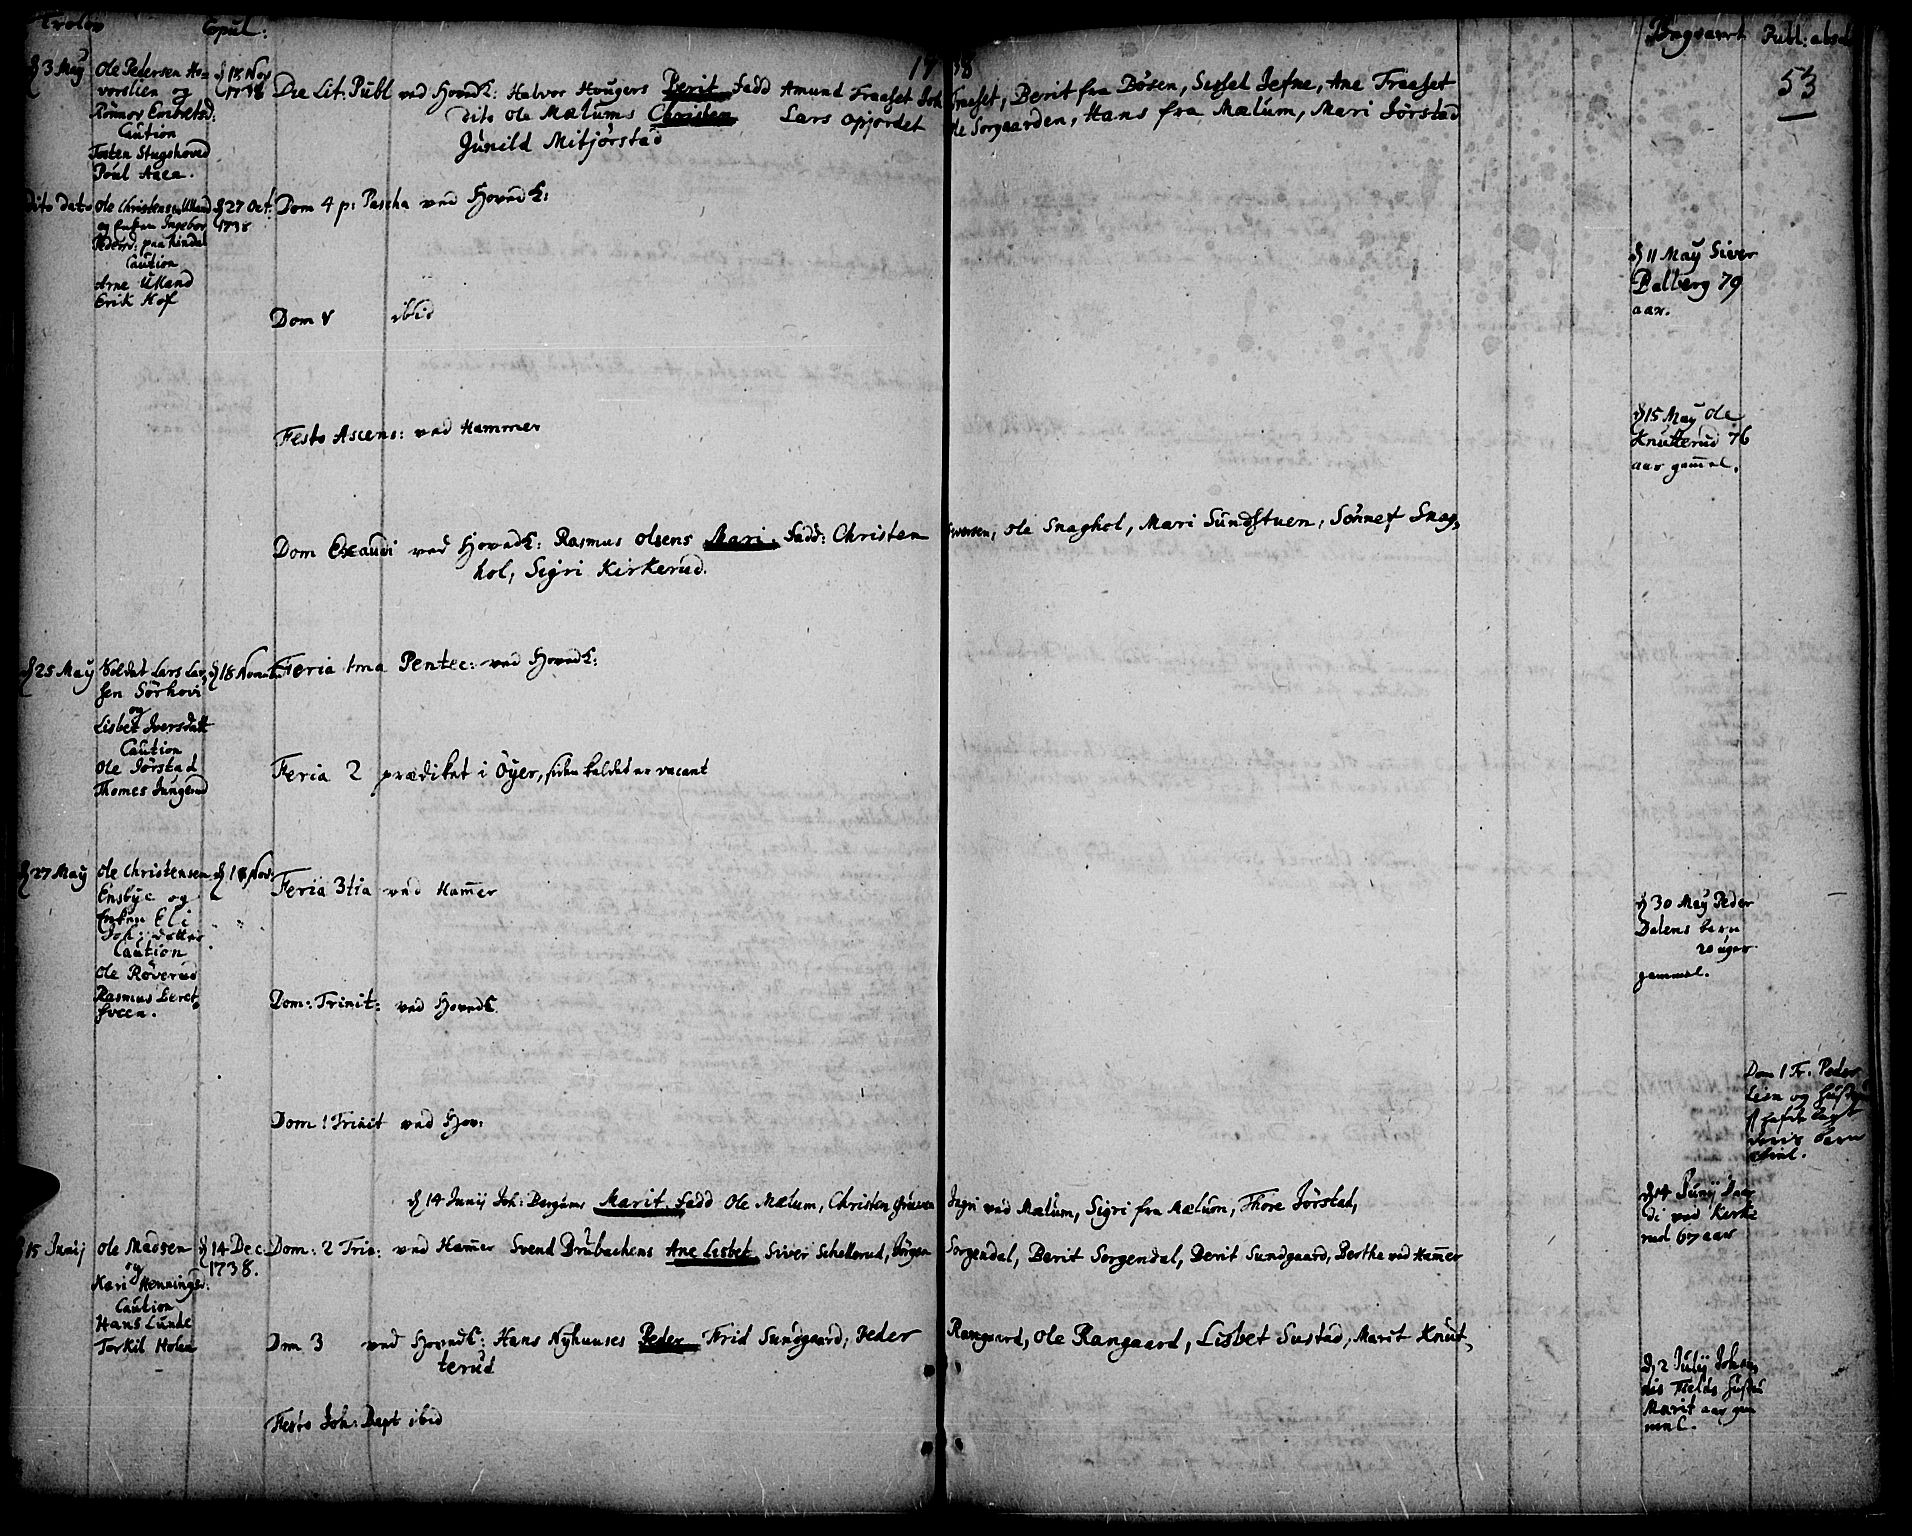 Trolov
Copul:
1738
Begravet Publ: absol
53
d 3 May
Ole Pedersen Ho=
verslien og
Rönnov Envoretsd:
Caution
Torsten Stugshoved
Poul Aaen.
d 18 Nov
1738
Die Lit: Publ ved Hovedk: Halvor Hougers Berit Fadd Amund Fraaset Joh Fraaset, Berit fra Bösen, Sissel Jefne, Ane Fraaset
dito Ole Mælums Christen Lars opjordet Ole Sorgaarden, Hans fra Mælum, Mari Jörstad
Gunild Mitjörstad
dito dato
Ole Christensen Ulland
og Enken Ingebor
Pedersd: paa Rindal
Caution
Arne Ulland
Erik Hof
d 27 Oct:
1738
Dom 4 p: Pascha ved Hovedk:
d 11 May Siver
Balberg 79
aar.
Dom V ibid
Festo Ascens: ved Hammer
d 15 May Ole
Knutterud 76
aar gam̄el.
Dom Exaudi ved Hovedk: Rasmus Olsens Mari. Fadd: Christen Iversen, Ole Snaghol, Mari Sundstuen, Sönnef Snag=
hol, Sigri Kirkerud.
d 25 May
Soldat Lars Lar=
sen Sörhovi
og
Lisbet Iversdatt
Caution
Ole Jörstad
Thomes Jungerud
d 18 Nov
Feria 1ma Pentec: ved Hovedk:
Feria 2 prædiket i Öyer, siden kaldet er vacant
d 27 May
Ole Christensen
Ensbye og
Enken Eli
Joh: datter
Caution
Ole Röverud
Rasmus Leret
sveen.
d 18 Nov:
Feria 3tia ved Ham̄er
d 30 May Peder
Dalens barn
20 uger
gammel.
Dom: Trinit: ved Hovedk
Dom 1 Trinit ved Hov:
Dom 1 Tr. Peder
Lien og Hustru
lagt
barn
d 14 Junij Joh: Bergums Marit. Fadd Ole Mælum, Christen Ingri ved Mælum, Sigri fra Mælum, Thore Jörstad,
d 14 Junij
di ved Kirke
rud 67 aar
15 Junij
Ole Madsen
og
Kari Hennings:
Caution
Hans Lunde
Torkil Holen
d 14 Dec
1738.
Dom: 2 Trin: ved Ham̄er Svend Brubachens Ane Lisbet Siver Schellerud, Jörgen Sorgendal, Berit Sorgendal, Berit Sundgaard, Berthe ved Ham̄er
Dm 3 ved Hovedk: Hans Nyhuuses Peder Frid Sundgaard, Peder Rangaard, Ole Rangaard, Lisbet Sustad, Marit Knut=
terud
d 2 Julij Johan
nis Fields Hustru
Marit aar gam
mel.
Festo Joh: Bapt ibid